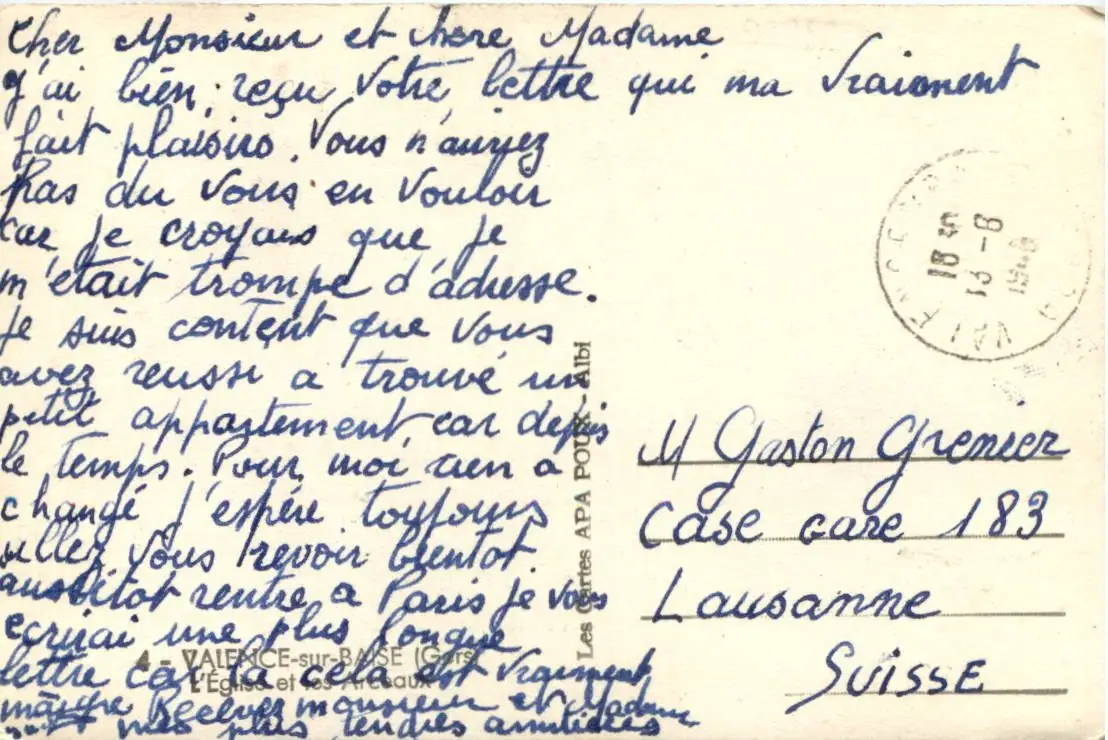 Cher Monsieur et chère Madame
J'ai bien reçu votre lettre qui ma vraiment
fait plaisir. Vous n'auriez
pas du vous en vouloir
car je croyais que je
m'était trompé d'adresse.
Je suis content que vous
avez reussi a trouvé un
petit appartement car depuis
le temps. Pour moi rien a
changé j'espére toujours
allez vous revoir bientot.
aussitot rentre a Paris je vous
ecrirai une plus longue
lettre car la cela est vraiment
maigre Recevez monsieur et Madame
mes plus tendres amitiées
4 - VALENCE-sur-BAISE (Gers)
L'Église et les Arceaux
Les Cartes APA POUX - Albi
18 H
13 - 8
VALENCE
M Gaston Grenier
Case gare 183
Lausanne
SUISSE